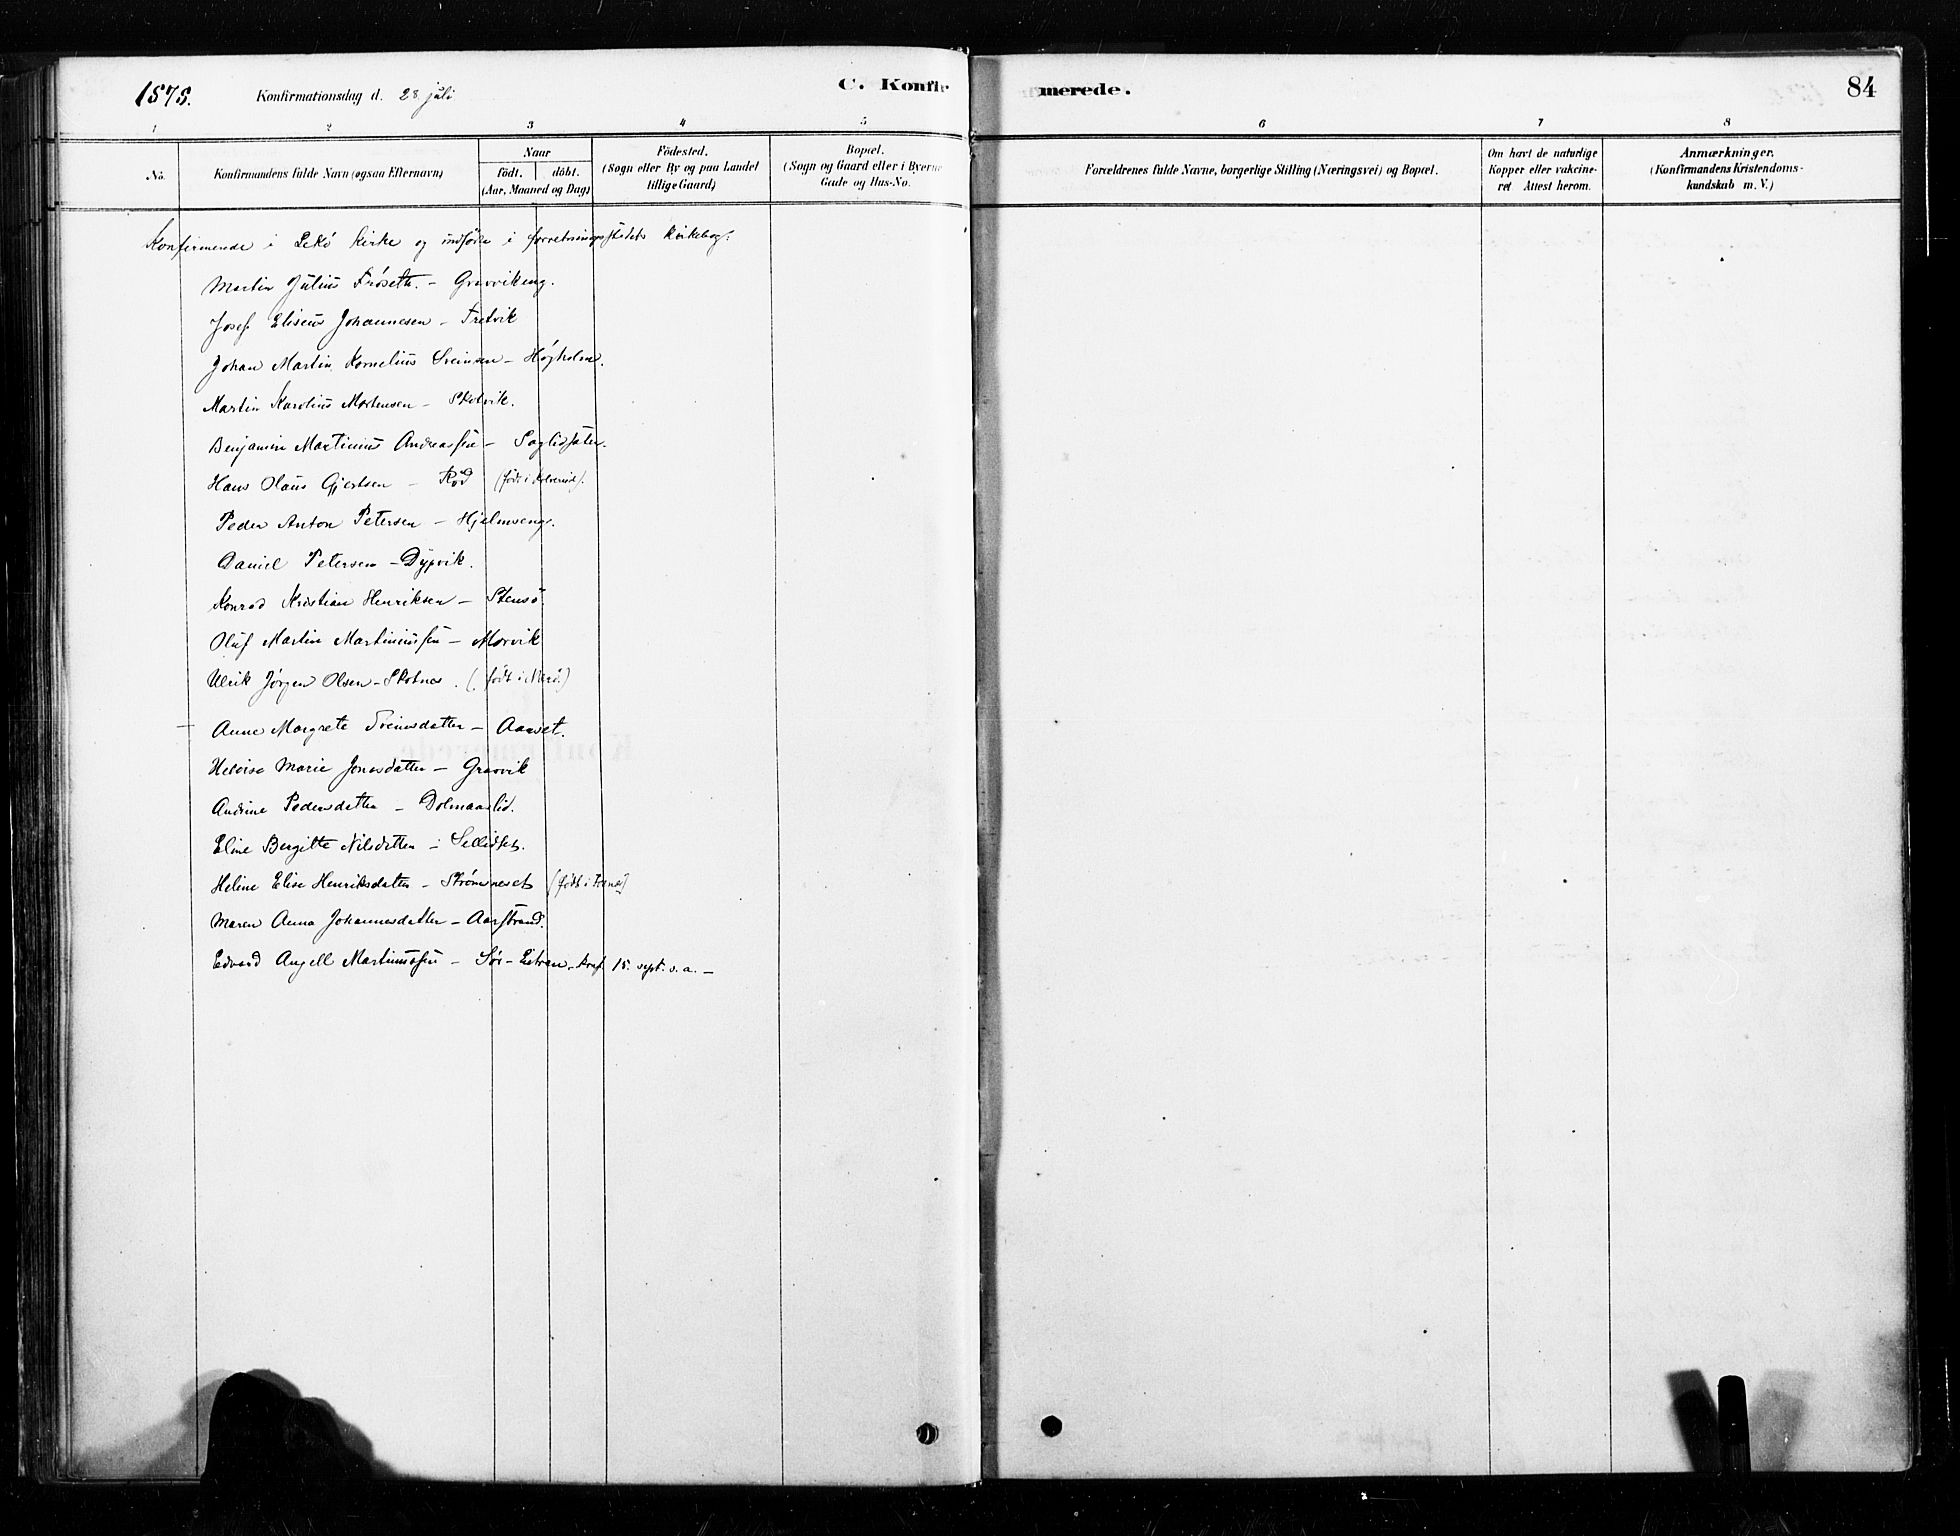 1878. Konfirmationsdag d. 28 juli
C. Konfir
merede.
84
1 2 3 4 5 6 7 8
No.
Konfirmandens fulde Navn (ogsaa Efternavn)
Naar
födt. döbt.
(Aar, Maaned og Dag)
Födested.
(Sogn eller By og paa Landet
tillige Gaard)
Bopæl.
(Sogn og Gaard eller i Byerne
Gade og Hus-No.
Forældrenes fulde Navne, borgerlige Stilling (Næringsvei) og Bopæl.
Om havt de naturlige
Kopper eller vakcine-
ret Attest herom.
Anmærkninger.
(Konfirmandens Kristendoms-
kundskab m. V.)
Konfirmerede i Lekö kirke og indförte i forretningsstedets kirkebog:
Martin Julius Fröseth. - Gravvikeng.
Josef Eliseus Johannesen - Tretvik
Johan Martin Kornelius Sveinsen - Högholm.
Martin Karolius Mortensen - Skotvik.
Benjamin Martinus Andreassen -
Hans Olaus Gjertsen - Röd (födt i Kolvereid).
Peder Anton Petersen - Hjelmseng.
Daniel Petersen - Dypvik.
Konrad Kristian Henriksen - Stensö
Oluf Martin Martinussen - Morvik
Ulrik Jörgen Olsen - Skotnes. (födt i Nærö.)
Anne Margrete Sveinsdatter - Aarset.
Heloise Marie Jonasdatter - Gravvik
Andrine Pedersdatter - Dolmaaslid.
Eline Bergitte Nilsdatter -
Heline Elise Henriksdatter - Strömneset (födt i
Maren Anna Johannesdatter - Aarstrand.
Edvard Angell Martinussen - Sör-Eitran, konf. 15. sept. s. a. -